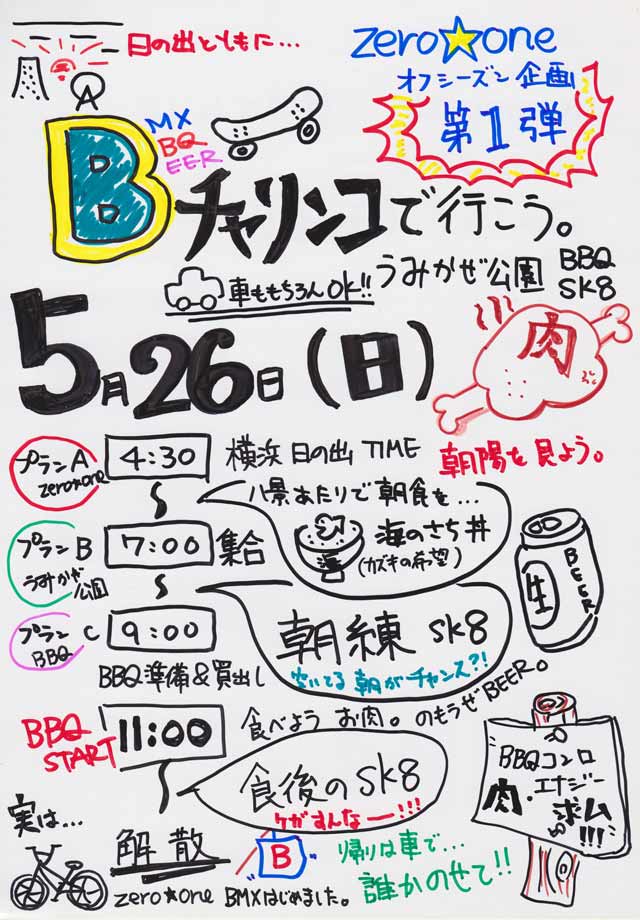 日の出とともに…
zero☆one
オフシーズン企画
第1弾
B
MX
BQ
EER
チャリンコで行こう。
車ももちろんOK!!
うみかぜ公園 BBQ SK8
5月26日(日)
肉
プランA zero★one
4:30 横浜 日の出 TIME
朝陽を見よう。
八景あたりで朝食を…
海のさち丼
(カズキの希望)
プランB うみかぜ公園
7:00 集合
生
BEER
朝練 SK8
空いてる朝がチャンス?!
プランC BBQ
9:00
BBQ準備&買出し
BBQ START
11:00 食べよう お肉。のもうぜBEER。
食後のSK8
ケガすんなー!!!
BBQコンロ
肉・エナジー
求ム!!!
実は…
解散
B
帰りは車で…
誰かのせて!!
zero★one BMXはじめました。